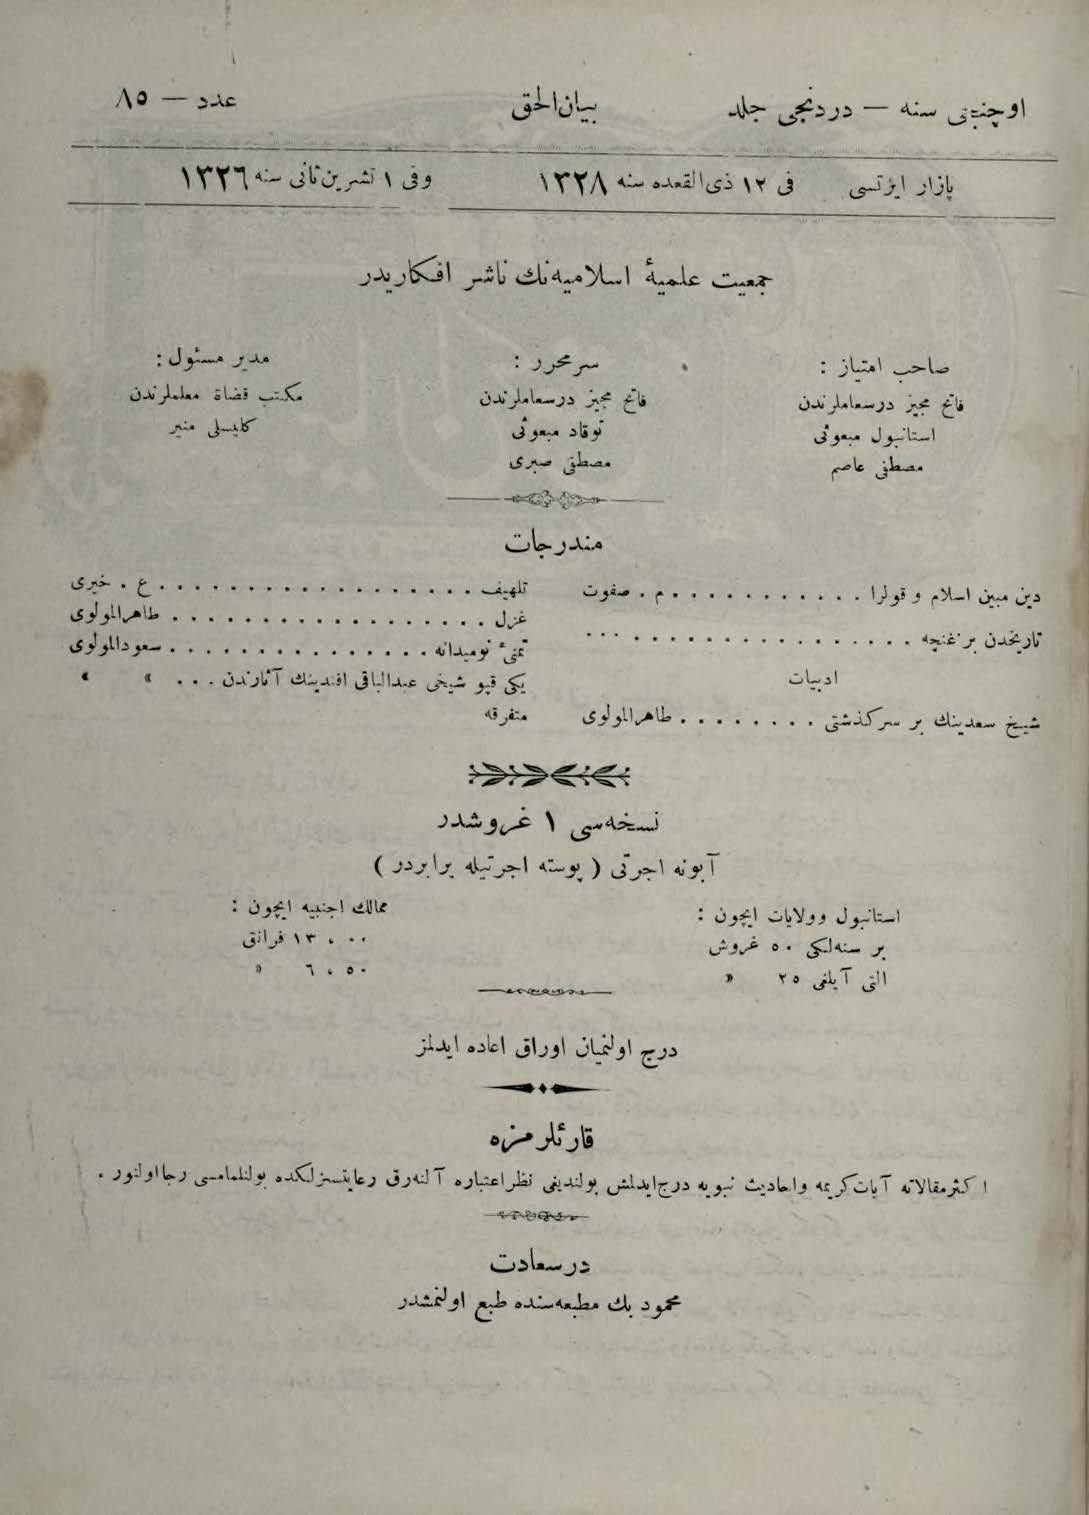 اوچنجی سنه — دردنجی جلد بیان‌الحق عدد — ٨٥
پازار ایرتسی فی ١٢ ذی‌القعده سنه ١٣٢٨ وفی ١ تشرین‌ثانی سنه ١٣٢٦
جمعیت علمیهٔ اسلامیه‌نك ناشر افکاریدر
صاحب امتیاز :
فاتح مجیز درسعاملرندن
استانبول مبعوثی
مصطفی عاصم
سرمحرر :
فاتح مجیز درسعاملرندن
توقاد مبعوثی
مصطفی صبری
مدیر مسئول :
مکتب قضاة معلملرندن
کلیسلی منیر
مندرجات
دین مبین اسلام و قولرا . . . . . . . . . . . . م . صفوت
تاریخدن بر غنچه . . . . . . . . . . . . . . . . . . . .
ادبیات
شیخ سعدینك بر سرکذشتی . . . . . . . . طاهرالمولوی
تلهیف . . . . . . . . . . . . . . . . . . ع . خیری
غزل . . . . . . . . . . . . . . . . . . طاهرالمولوی
تمنیٔ نومیدانه . . . . . . . . . . . . . . . سعودالمولوی
یکی قپو شیخی عبدالباقی افندینك آثارندن . . . » »
متفرقه
نسخه‌سی ١ غروشدر
آبونه اجرتی ( پوسته اجرتیله برابردر )
استانبول وولایات ایچون :
بر سنه‌لکی ٥٠ غروش
التی آیلغی ٢٥ »
ممالك اجنبیه ایچون :
١٣،٠٠ فرانق
٦،٥٠ »
درج اولنمیان اوراق اعاده ایدلمز
قارئلرمزه
اکثرمقالاته آیات‌کریمه واحادیث نبویه درج‌ایدلمش بولندیغی نظراعتباره آلنه‌رق رعایتسزلکده بولنلمامسی رجااولنور .
درسعادت
محمود بك مطبعه‌سنده طبع اولنمشدر